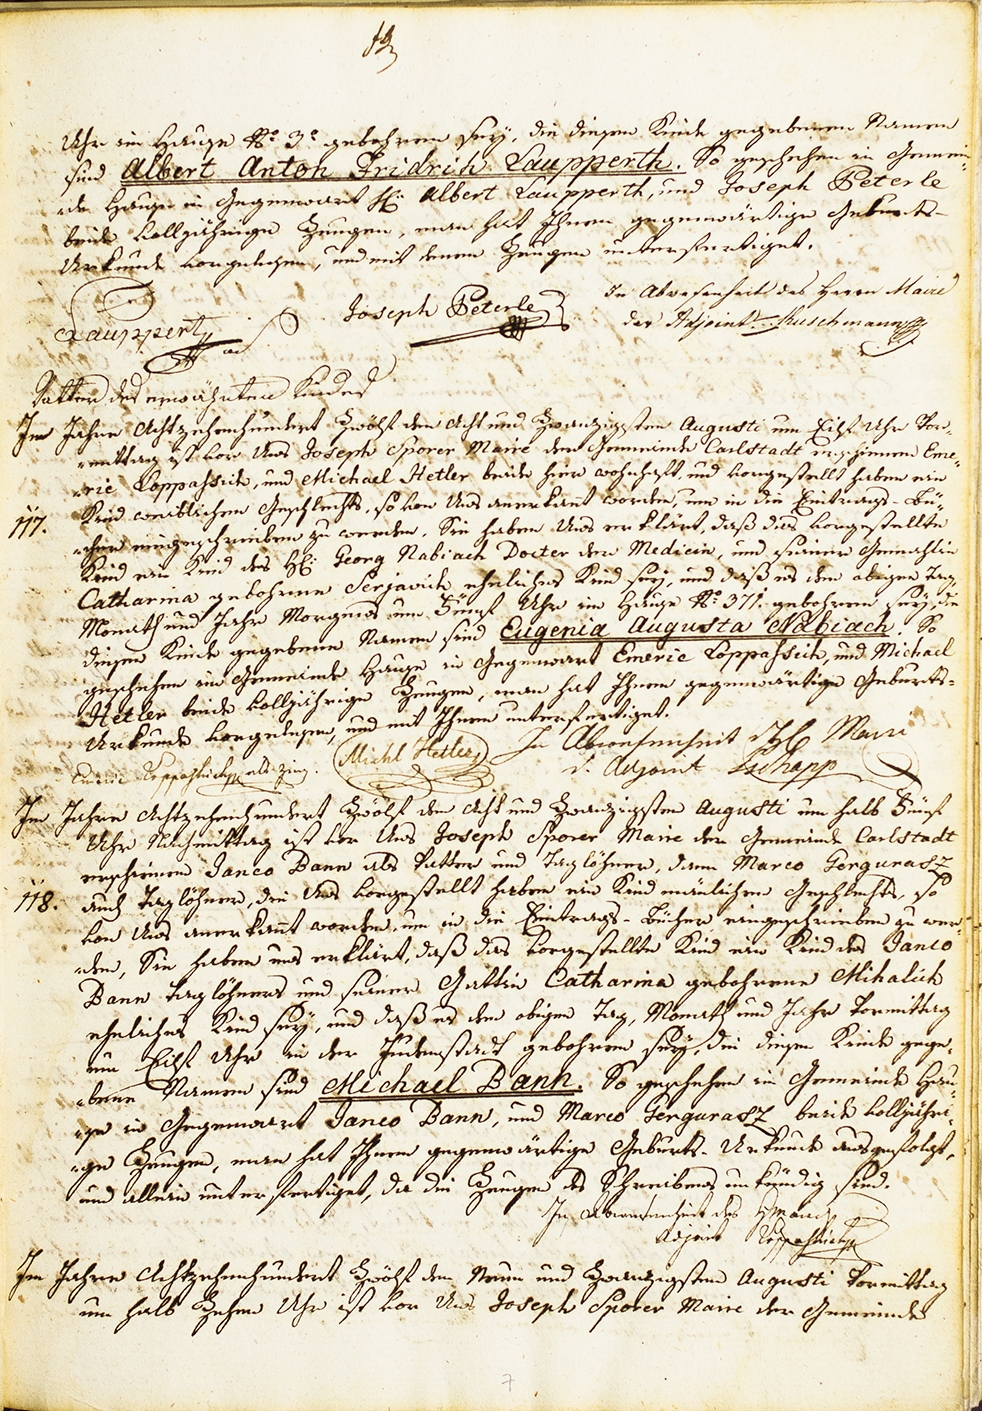 Uhr im Hause No 3 gebohren sey, die diesem Kinde gegebenen Namen
sind Albert Anton Fridrich Laupperth. So geschehen in Gemein-
-de Hause in Gegenwart H: Albert Laupperth, und Joseph Peterle
beide volljährige Zeugen, man hat Ihnen gegenwärtige Geburts-
Urkunde vorgelesen, und mit denen Zeugen unterfertiget.
Laupperth
Joseph Peterle
In Abwesenheit des Herrn Maire
der Adjoint Kuschmann
Vatter des erwähnten Kindes
Im Jahre Achtzehenhundert Zwölf den Acht und Zwanzigsten Augusti um Eilf Uhr Vor-
-mittag ist vor Uns Joseph Sporer Maire der Gemeinde Carlstadt erschienen Eme-
-ric Loppassich, und Michael Hetler beide hier wohnhaft, und vorgestellt haben ein
117.
Kind weiblichen Geschlechts, so von Uns anerkant worden, um in die Eintrags-Bü-
-cher eingeschrieben zu werden. Sie haben Uns erklärt, daß das vorgestellte
Kind ein Kind des H: Georg Nabiach Docter der Medicin, und seiner Gemahlin
Catharina gebohrne Serjavich eheliches Kind sey, und daß es den obigen Tag,
Monath und Jahr Morgens um Fünf Uhr im Hause No 371. gebohren sey, die
diesem Kinde gegebene Namen sind Eugenia Augusta Nabiach. So
geschehen im Gemeinde Hause in Gegenwart Emeric Loppassich, und Michael
Hetler beide volljährige Zeugen, man hat Ihnen gegenwärtige Geburts-
Urkunde vorgelesen, und mit Ihnen unterfertiget.
Emeric Loppassich als Zeug.
Michl Hetler
In Abwesenheit des Mairi
d. Adjoint
Im Jahre Achtzehenhundert Zwölf den Acht und Zwanzigsten Augusti um halb Fünf
Uhr Nachmittag ist vor Uns Joseph Sporer Maire der Gemeinde Carlstadt
erschienen Janco Bann als Vatter und Taglöhner, dann Marco Gerguraсz
118.
auch Taglöhner, die Uns vorgestellt haben ein Kind mänlichen Geschlechts, so
von Uns anerkannt worden, um in die Eintrags-Bücher eingeschrieben zu wer-
-den, Sie haben uns erklärt, daß das vorgestellte Kind ein Kind des Janco
Bann Taglöhners und seiner Gattin Catharina gebohrene Mihalich
eheliches Kind sey, und daß es den obigen Tag, Monath und Jahr Vormittag
um Eilf Uhr in der Judenstadt gebohren sey, die diesem Kinde gege-
-bene Namen sind Michael Bann. So geschehen in Gemeinde Hau-
-se in Gegenwart Janco Bann, und Marco Gergurasz beide volljähri-
-ge Zeugen, man hat Ihnen gegenwärtige Geburts-Urkunde ausgefolgt,
und allein unterfertiget, da die Zeugen des Schreibens unkündig sind.
In Abwesenheit des H Maire
Adjoint Loppassich
Im Jahre Achtzehenhundert Zwölf den Neun und Zwanzigsten Augusti Vormittag
um halb Zehen Uhr ist vor Uns Joseph Sporer Maire der Gemeinde
7